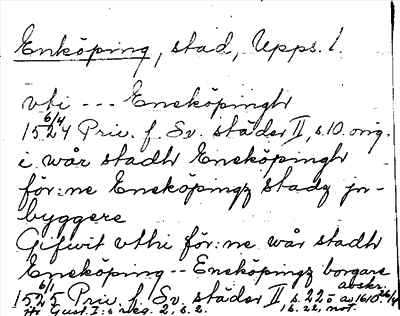 Enköping, stad, Upps. l.
vti --- Eneköpingh
15 6/4 24 Priv. f. Sv. städer II, s. 10. orig.
i wår stadh Eneköpingh
för:ne Eneköpingz stadz jn-
byggere
Gifwit vthi för:ne wår stadh
Eneköping -- Eneköpingz borgare
15 6/1 25 Priv. f. Sv. städer II s. 22 avskr. av 16 26/4
itr Gust. I:s reg. 2, s. 2. 16. 22, not.